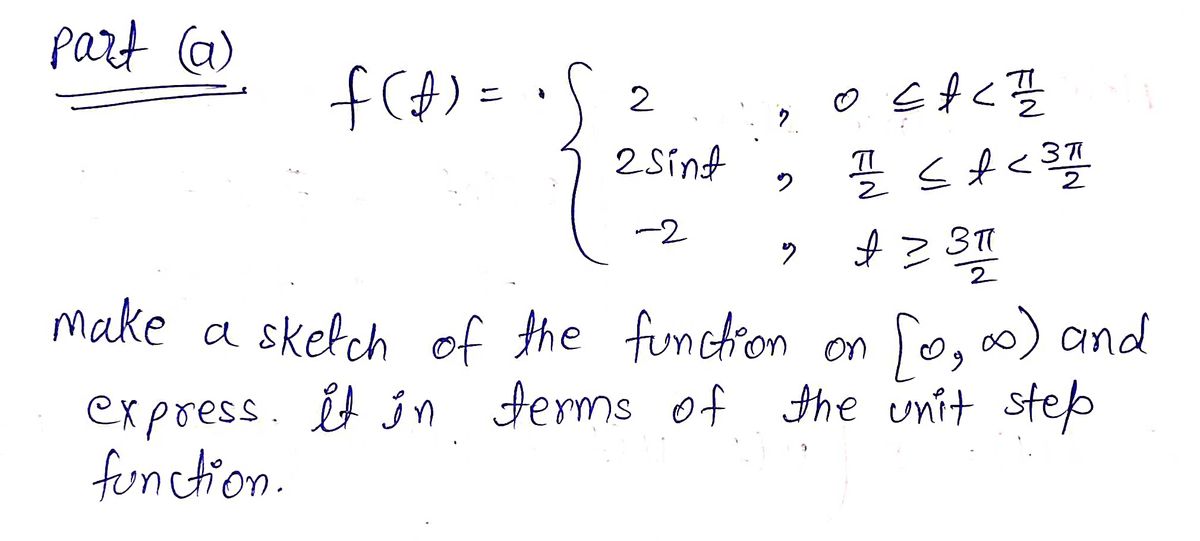 Part (a)
f(t) = { 2 , 0 ≤ t < π/2
2 sint , π/2 ≤ t < 3π/2
-2 , t ≥ 3π/2
make a sketch of the function on [0, ∞) and
express. it in terms of the unit step
function.